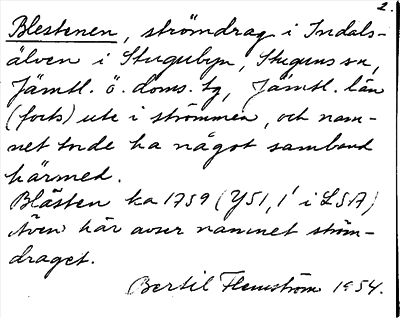 2.
Blestenen, strömdrag i Indals-
älven i Stugubyn, Stuguns sn,
Jämtl. ö. doms. tg, Jämtl. län
(forts) ute i strömmen, och nam-
net torde ha något samband
härmed.
Blästen ka 1759 (Y51, 1' i LSA)
Även här avser namnet ström-
draget.
Bertil Flemström 1954.